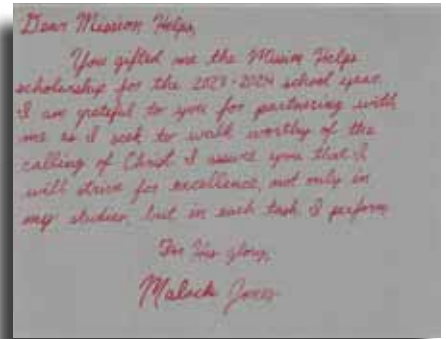 Dear Mission Helps,
You gifted me the Mission Helps
scholarship for the 2023-2024 school year.
I am grateful to you for partnering with
me as I seek to walk worthy of the
calling of Christ. I assure you that I
will strive for excellence, not only in
my studies, but in each task I perform.
For His glory,
Malack Jones